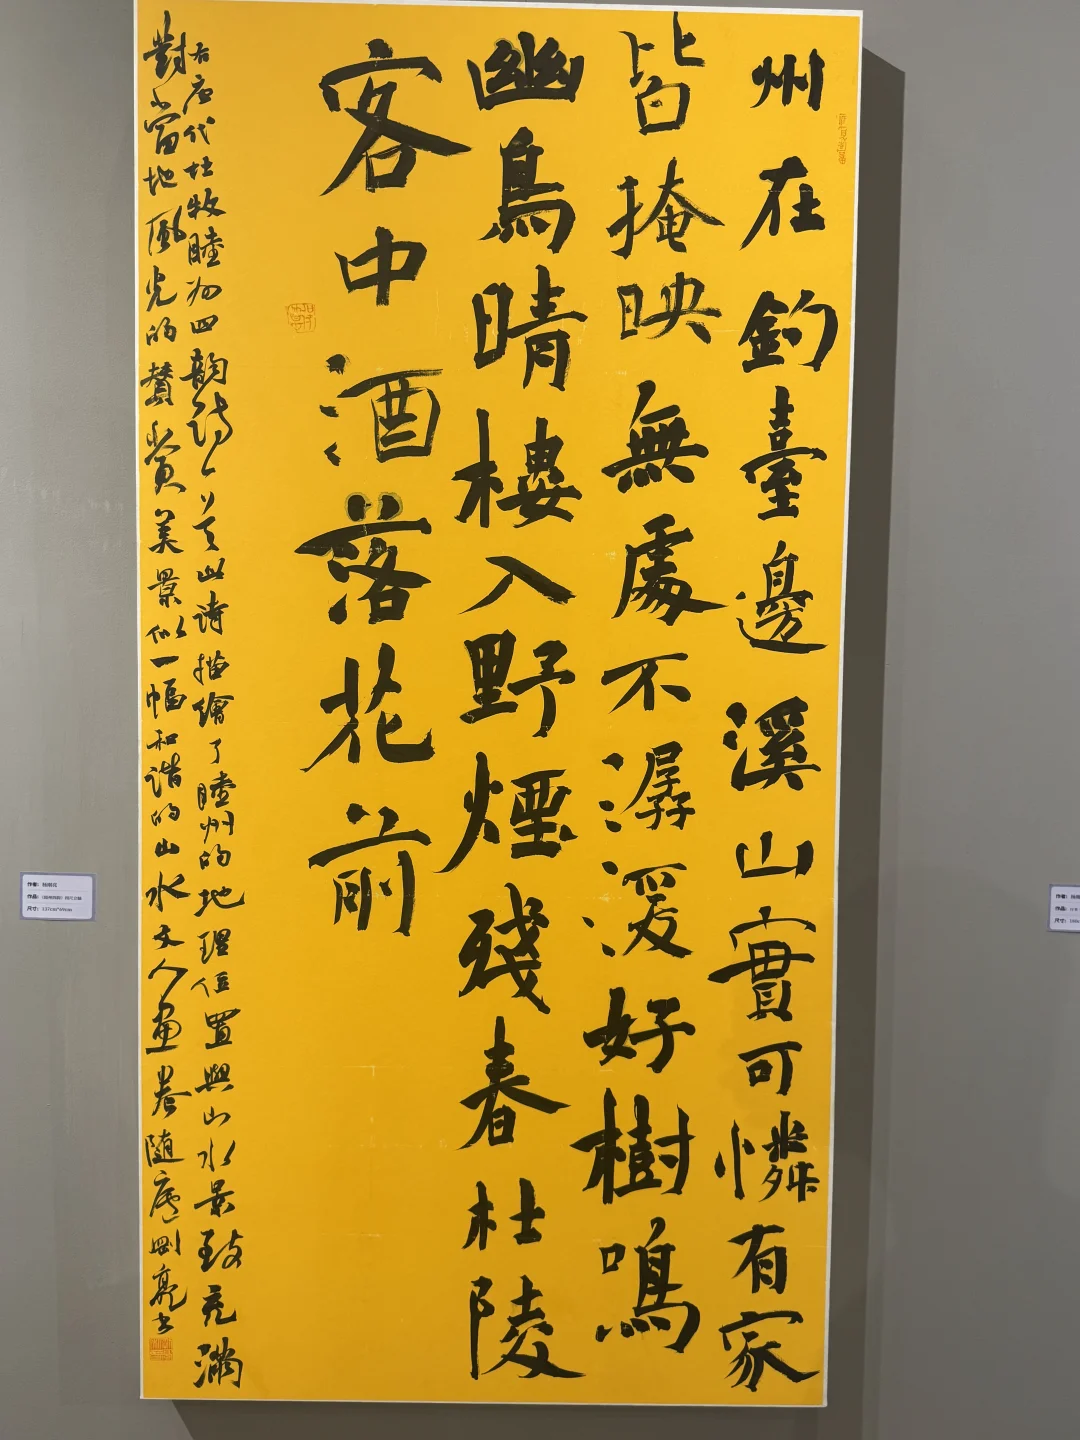 州在釣臺邊溪山實可憐有家
皆掩映無處不潺湲好樹鳴
幽鳥晴樓入野煙殘春杜陵
客中酒落花前
右唐代杜牧睦州四韻詩一首此詩描繪了睦州的地理位置與山水景致充滿
對當地風光的贊賞美景似一幅和谐的山水文人畫卷隨庵剛亮書
作者：
作品：
尺寸：137cm*69cm
作者：
作品：
尺寸：